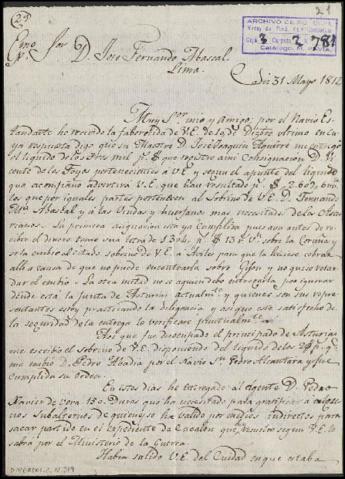 21
Exmo Sor D. Jose Fernando Abascal
Lima.
Cadiz 31 Mayo 1812
Muy Sor mio y Amigo: por el Navio Es-
tandarte he recibido la faborecida de V.E. de
ya respuesta digo que su Maestre D. Jose Joaquin Aguirre me entregó
el liquido de los tres mil ps. que registró a mi consignacion D. Vi-
cente de los Foyos pertenecientes á V.E. y segun el apunte del liquido
que acompaño advertirá V.E. que han resultado
los que por iguales partes pertenecen al Sobrino de V.E. D. Fernando
Abascal y á las Viudas y huerfanos mas necesitados de las Astu-
rianos. Su primera asignacion está ya cumplida pues aun antes de re-
cibir el dinero tomé una letra de 1304 sobre la Coruña y
se la embié al citado sobrino de V.E. a Aviles para que la hiciese cobrar
alli a causa de que no puede encontrarla sobre Gijon y no quise retar-
dar el embio. La otra mitad no se aun en donde entregarla por ignorar
donde está la Junta de Asturias actualmte y quienes son sus repre-
sentantes estoy practicando la diligencia, y asi que esté satisfecho de
la seguridad de la entrega lo verificaré puntualmente.
Asi que fue desocupado el principado de Asturias
me escribió el sobrino de V.E. disponiendo del liquido de los
me embió D. Pedro Abadia por el Navio Sn Pedro Alcantara y fue
cumplida su orden.
En estos dias he entregado al Agente D. Pedro
Xavier de Vera 150 Duros que ha necesitado para gratificar á algunos
Subalternos de quienes se ha valido por medios indirectos para
sacar partido en el expediente de resuelto segun V.E. lo
sabrá por el Ministerio de la Guerra.
Habia salido V.E. del Cuidado en que estaba